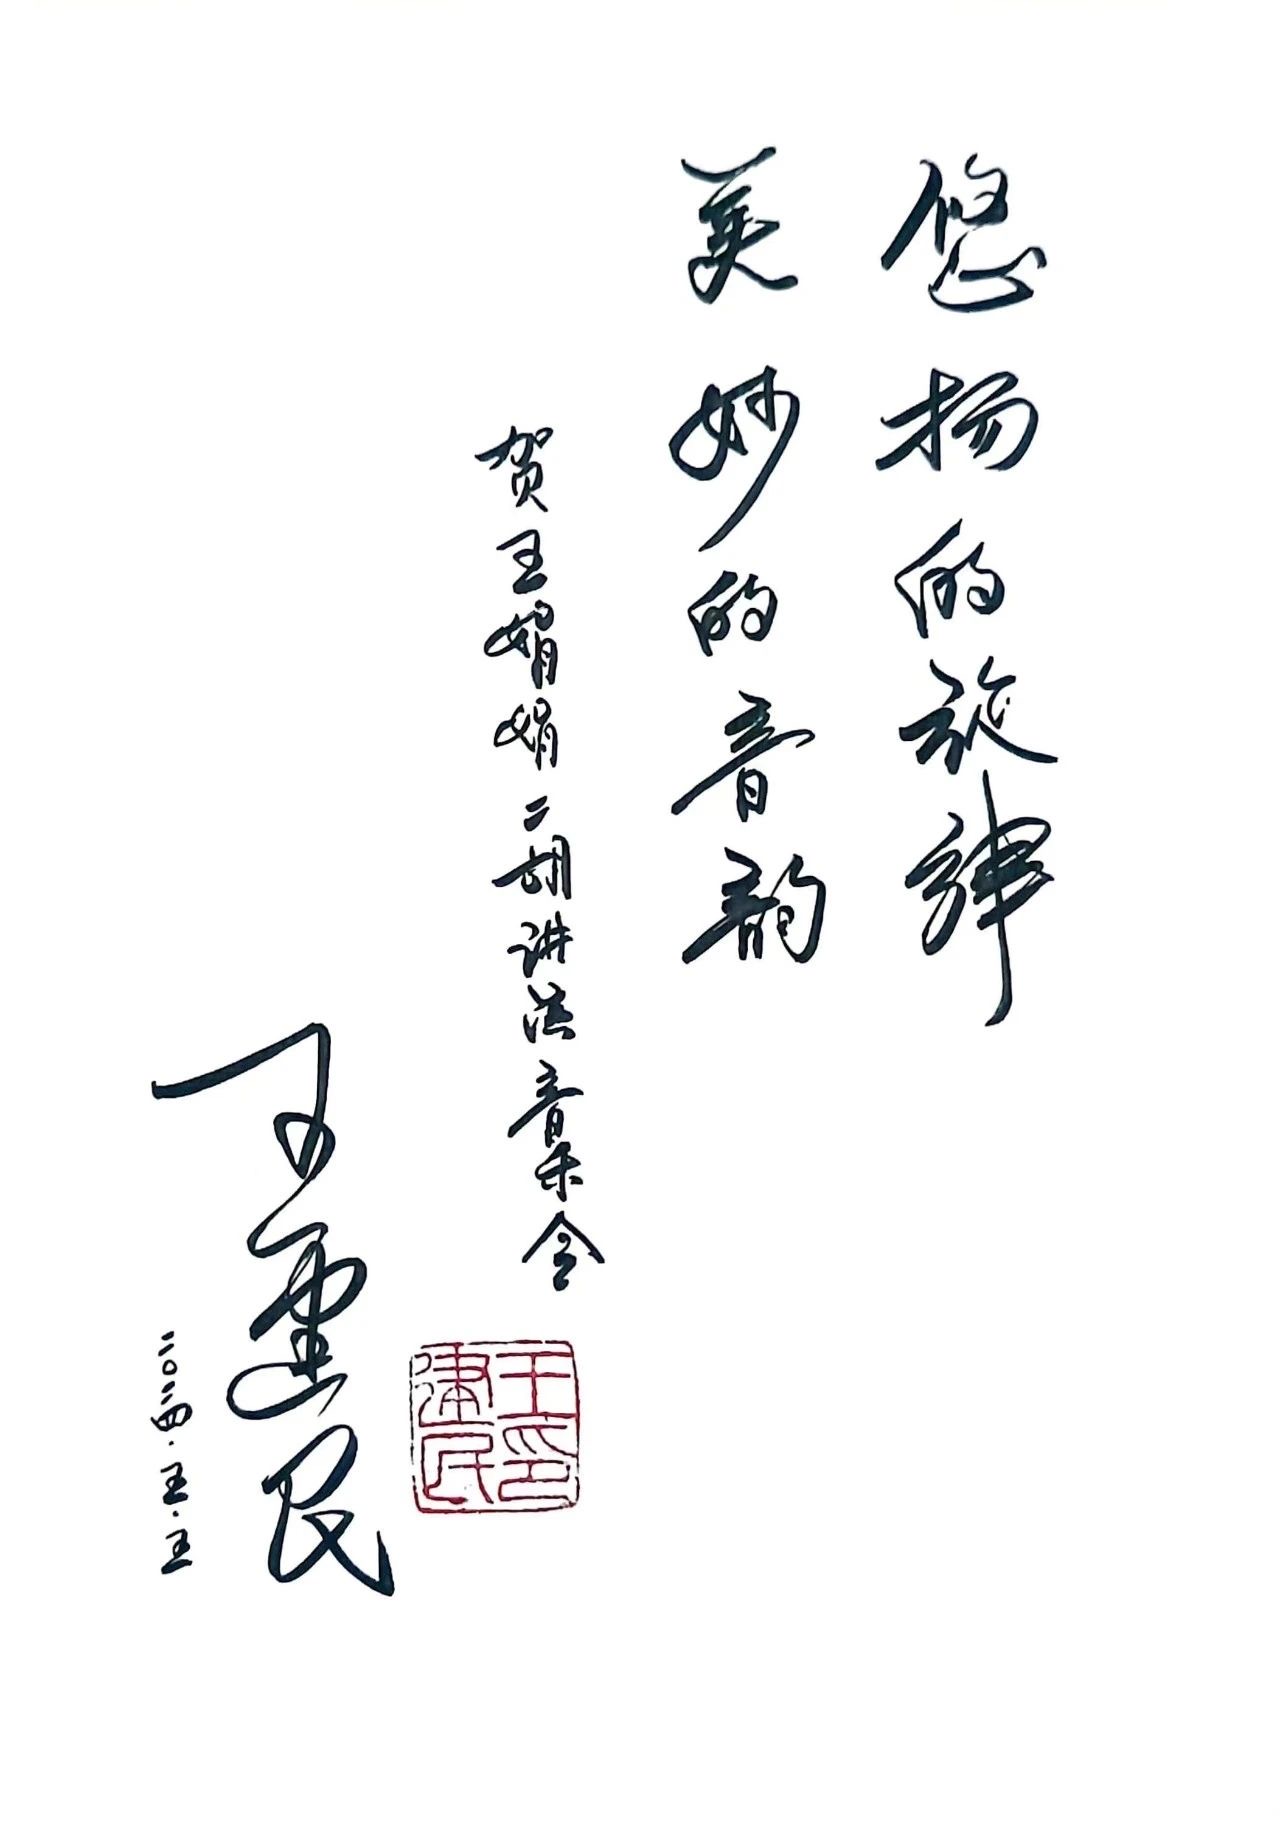 悠扬的旋律
美妙的音韵
贺王娟娟二胡讲演音乐会
王建民
二〇二四.五.五
王印建民